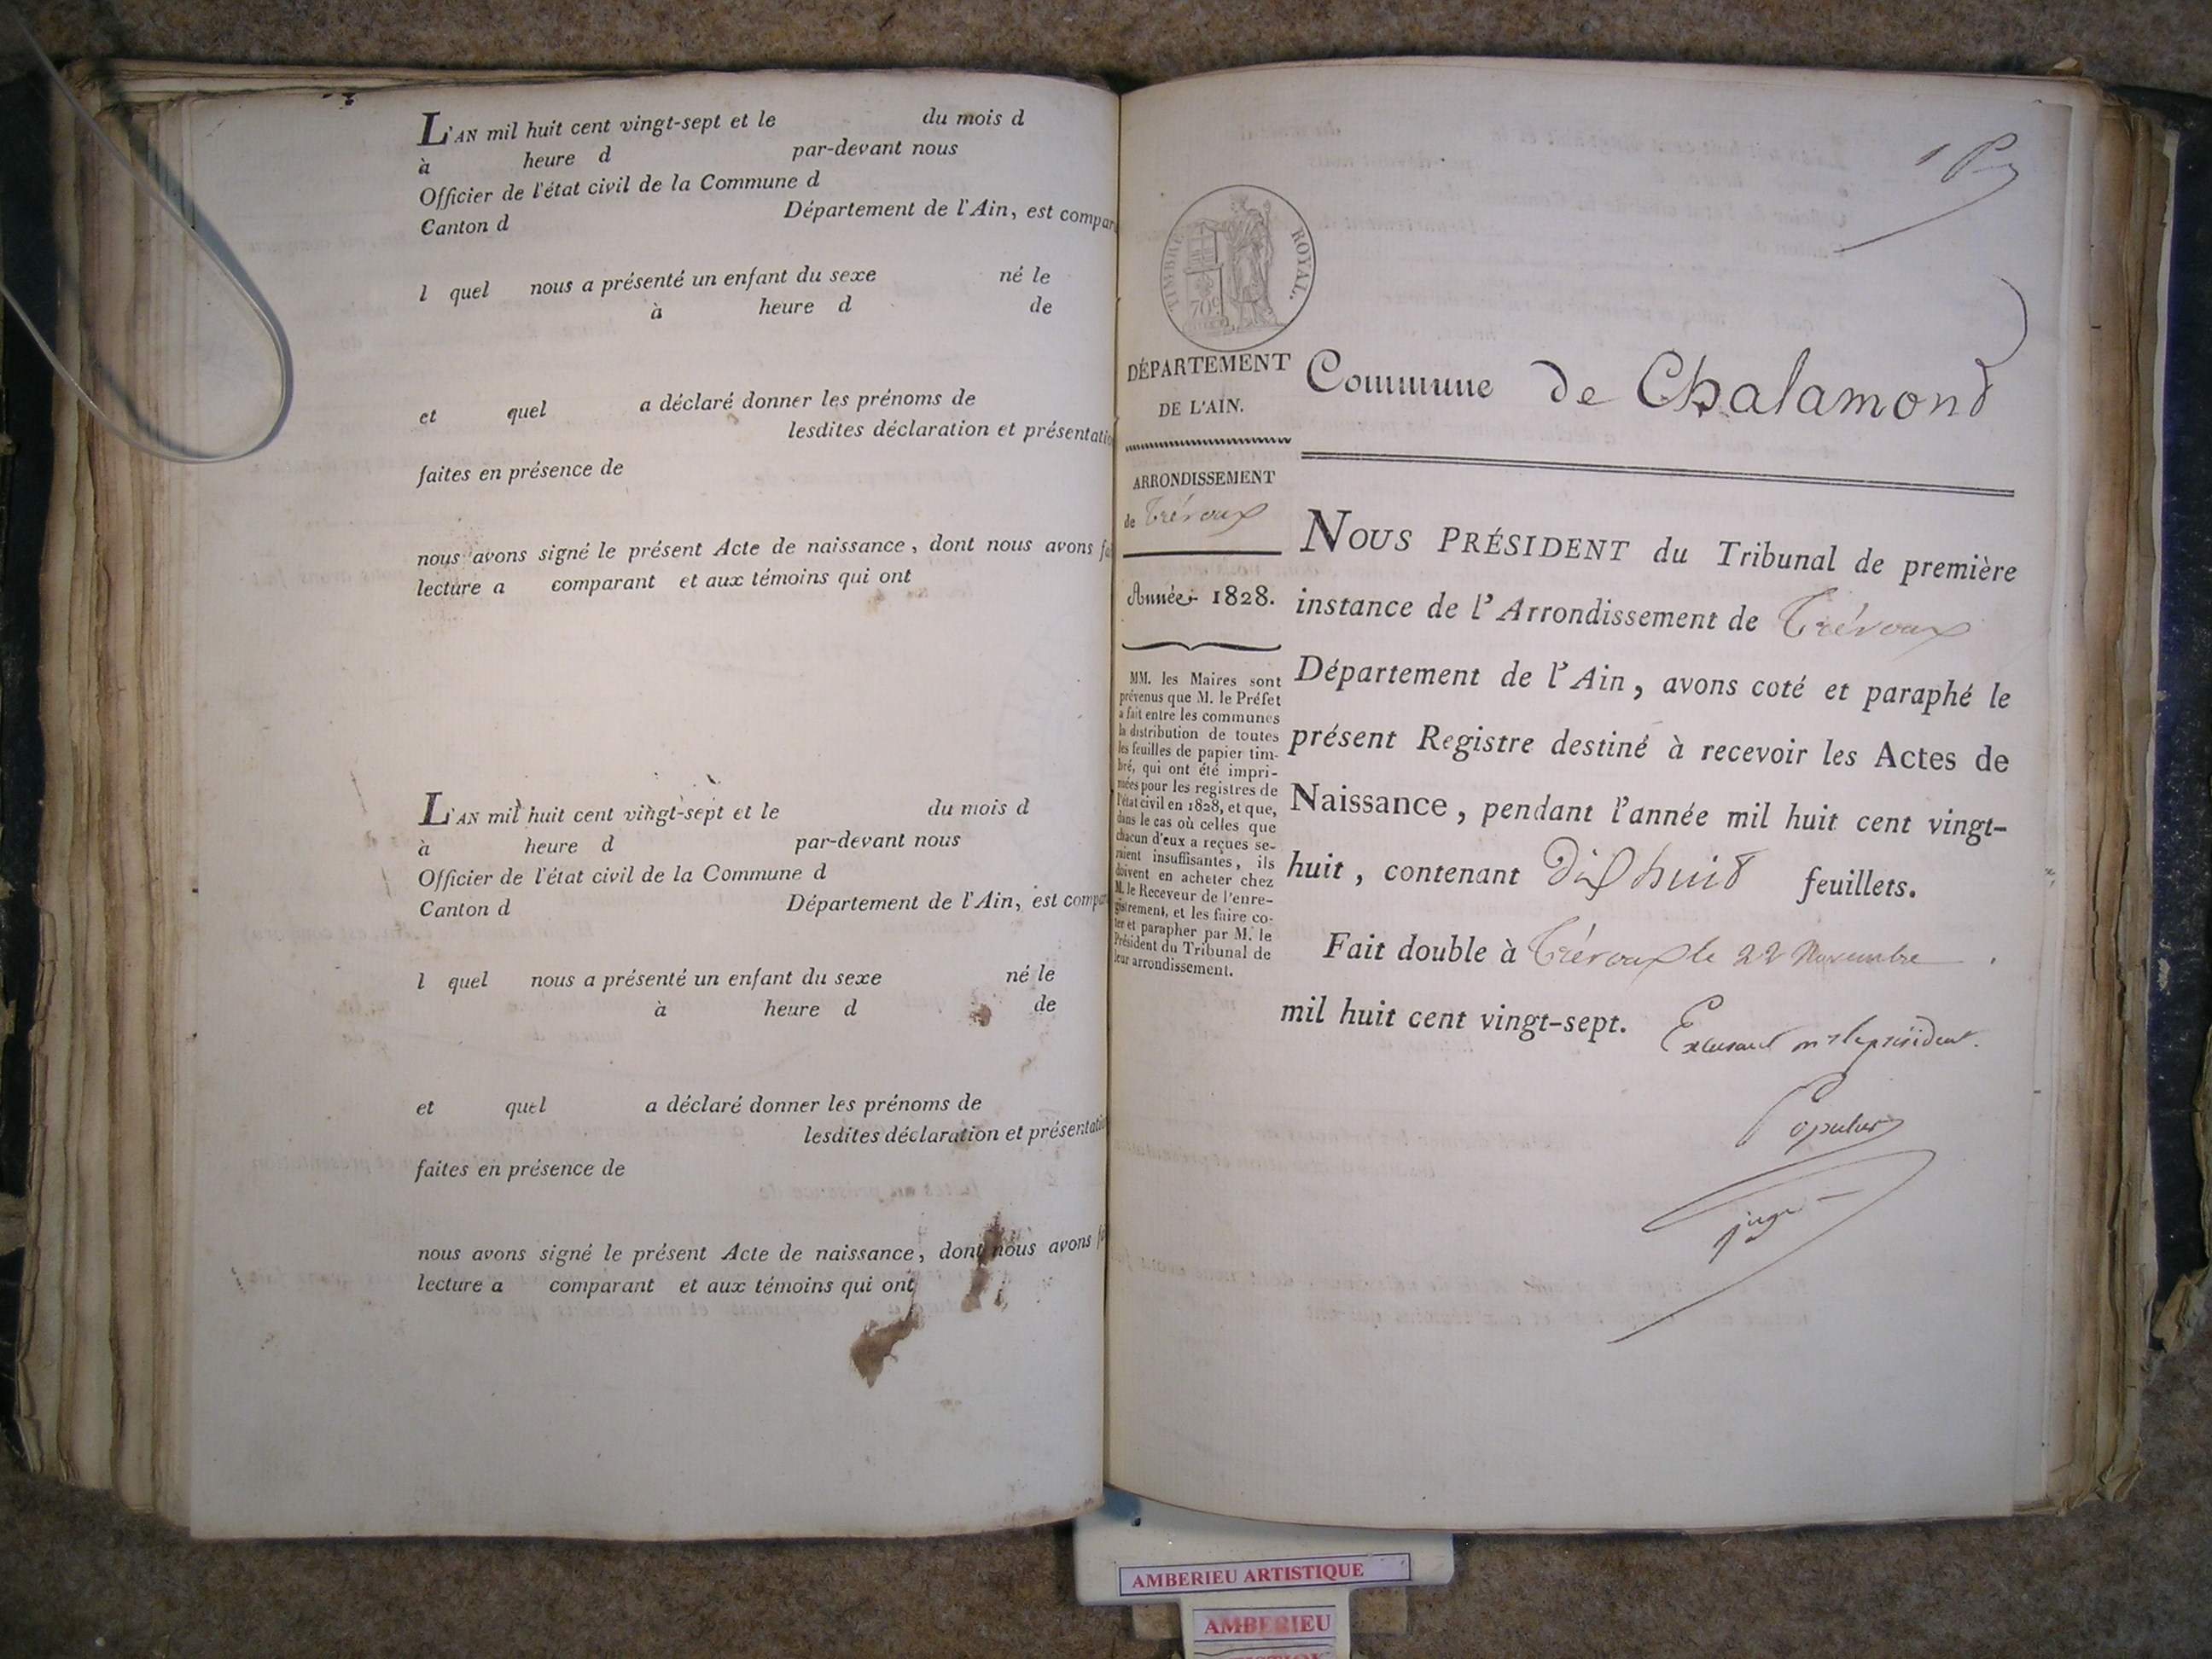 L'AN mil huit cent vingt-sept et le du mois d
à heure d par-devant nous
Officier de l'état civil de la Commune d
Canton d Département de l'Ain, est compar
l quel nous a présenté un enfant du sexe né le
à heure d de
et quel a déclaré donner les prénoms de
lesdites déclaration et présentatio
faites en présence de
nous avons signé le présent Acte de naissance, dont nous avons fa
lecture a comparant et aux témoins qui ont
L'AN mil huit cent vingt-sept et le du mois d
à heure d par-devant nous
Officier de l'état civil de la Commune d
Canton d Département de l'Ain, est compar
l quel nous a présenté un enfant du sexe né le
à heure d de
et quel a déclaré donner les prénoms de
lesdites déclaration et présentatio
faites en présence de
nous avons signé le présent Acte de naissance, dont nous avons fa
lecture a comparant et aux témoins qui ont
TIMBRE ROYAL.
70c
DÉPARTEMENT
DE L'AIN.
ARRONDISSEMENT
de Trévoux
Année 1828.
MM. les Maires sont
prévenus que M. le Préfet
a fait entre les communes
la distribution de toutes
les feuilles de papier tim-
bré, qui ont été impri-
mées pour les registres de
l'état civil en 1828, et que,
dans le cas où celles que
chacun d'eux a reçues se-
raient insuffisantes, ils
doivent en acheter chez
M. le Receveur de l'enre-
gistrement, et les faire co-
ter et parapher par M. le
Président du Tribunal de
leur arrondissement.
Commune de Chalamond
NOUS PRÉSIDENT du Tribunal de première
instance de l'Arrondissement de Trévoux
Département de l'Ain, avons coté et paraphé le
présent Registre destiné à recevoir les Actes de
Naissance, pendant l'année mil huit cent vingt-
huit, contenant Dix huit feuillets.
Fait double à Trévoux le 22 Novembre
mil huit cent vingt-sept.
président.
Populus
juge
AMBERIEU ARTISTIQUE
AMBERIEU